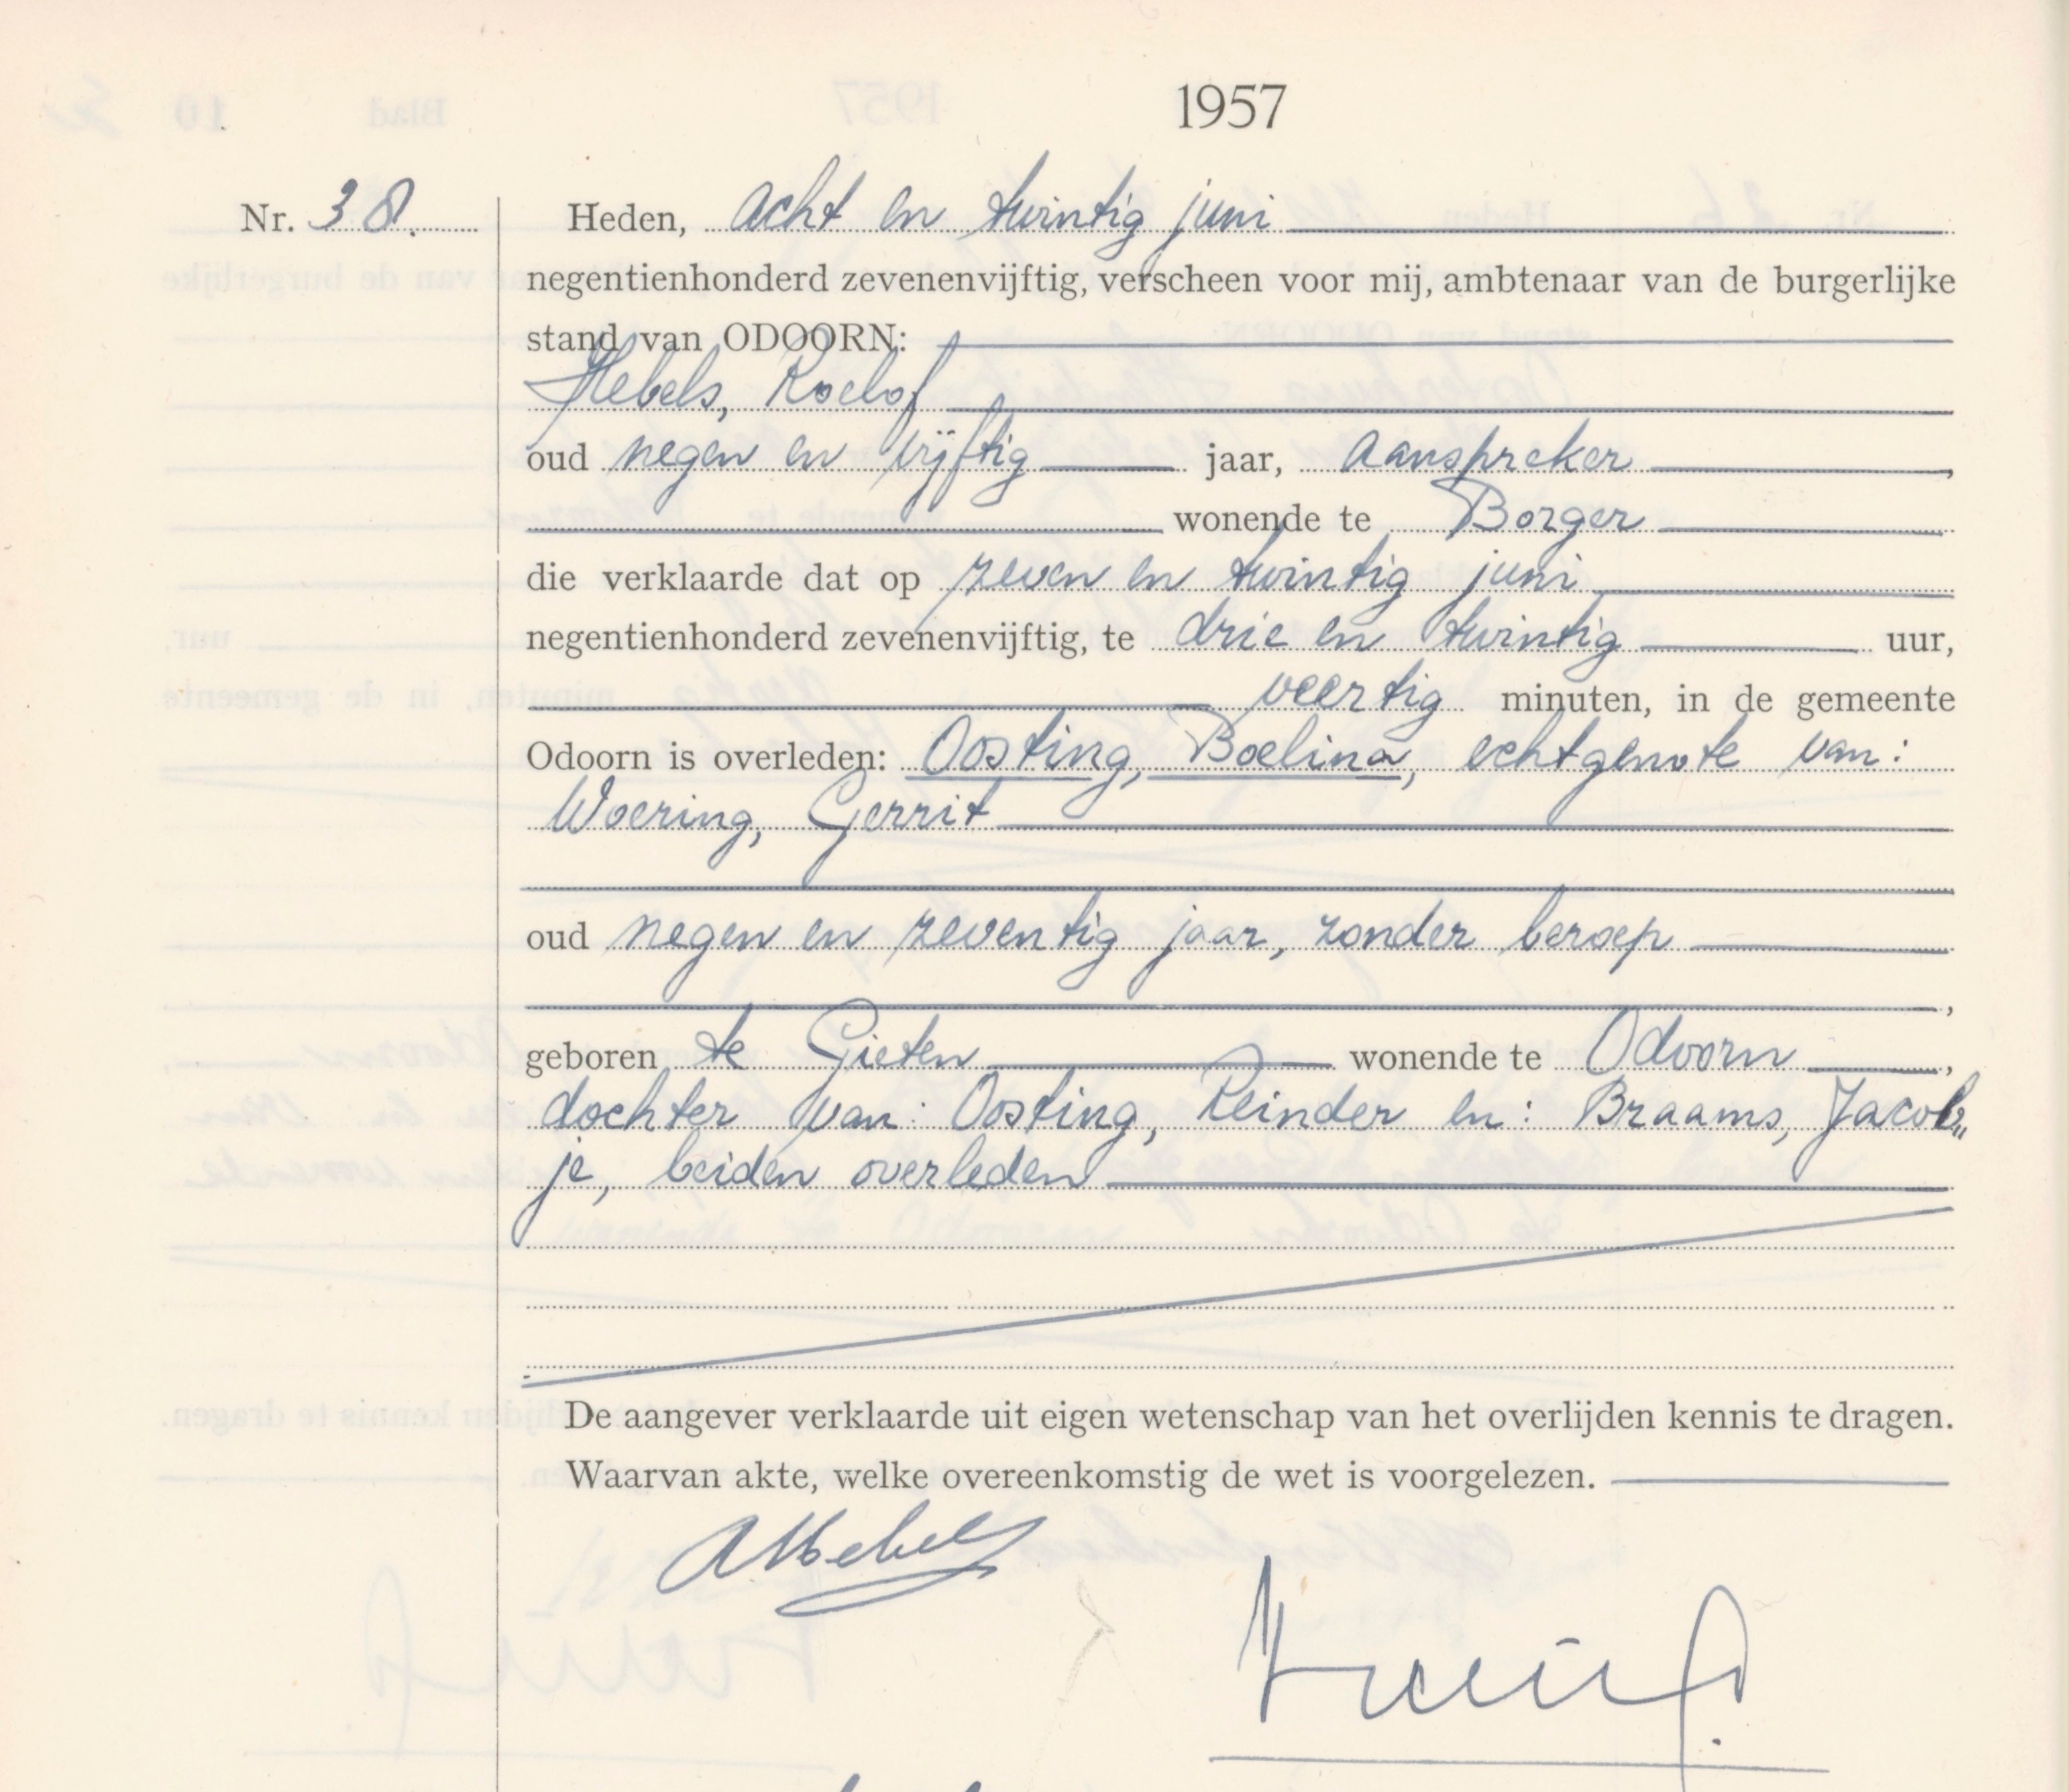 1957
Nr. 38.
Heden, acht en twintig juni
negentienhonderd zevenenvijftig, verscheen voor mij, ambtenaar van de burgerlijke
stand van ODOORN:
Hebels, Roelof
oud negen en vijftig jaar, aanspreker,
wonende te Borger
die verklaarde dat op zeven en twintig juni
negentienhonderd zevenenvijftig, te drie en twintig uur,
veertig minuten, in de gemeente
Odoorn is overleden: Oosting, Boelina, echtgenote van:
Woering, Gerrit
oud negen en zeventig jaar, zonder beroep
,
geboren te Gieten wonende te Odoorn,
dochter van: Oosting, Reinder en: Braams, Jacob„
je, beiden overleden
De aangever verklaarde uit eigen wetenschap van het overlijden kennis te dragen.
Waarvan akte, welke overeenkomstig de wet is voorgelezen.